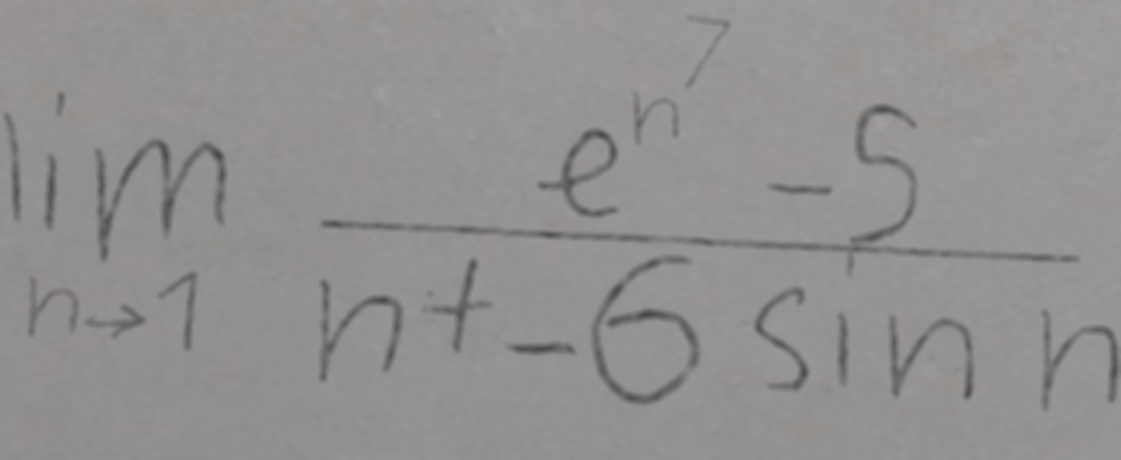 \lim_{n \to 1} \frac{e^{n^7} - 5}{n + - 6 \sin n}